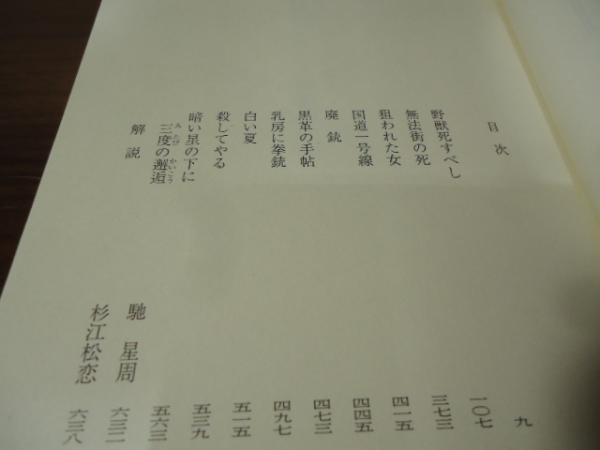 目次
野獣死すべし 九
無法街の死 一〇七
狙われた女 三七三
国道一号線 四一五
廃銃 四四五
黒革の手帖 四七三
乳房に拳銃 四九七
白い夏 五一五
殺してやる 五三九
暗い星の下に 五六三
三度の邂逅 馳星周 六三二
解説 杉江松恋 六三八